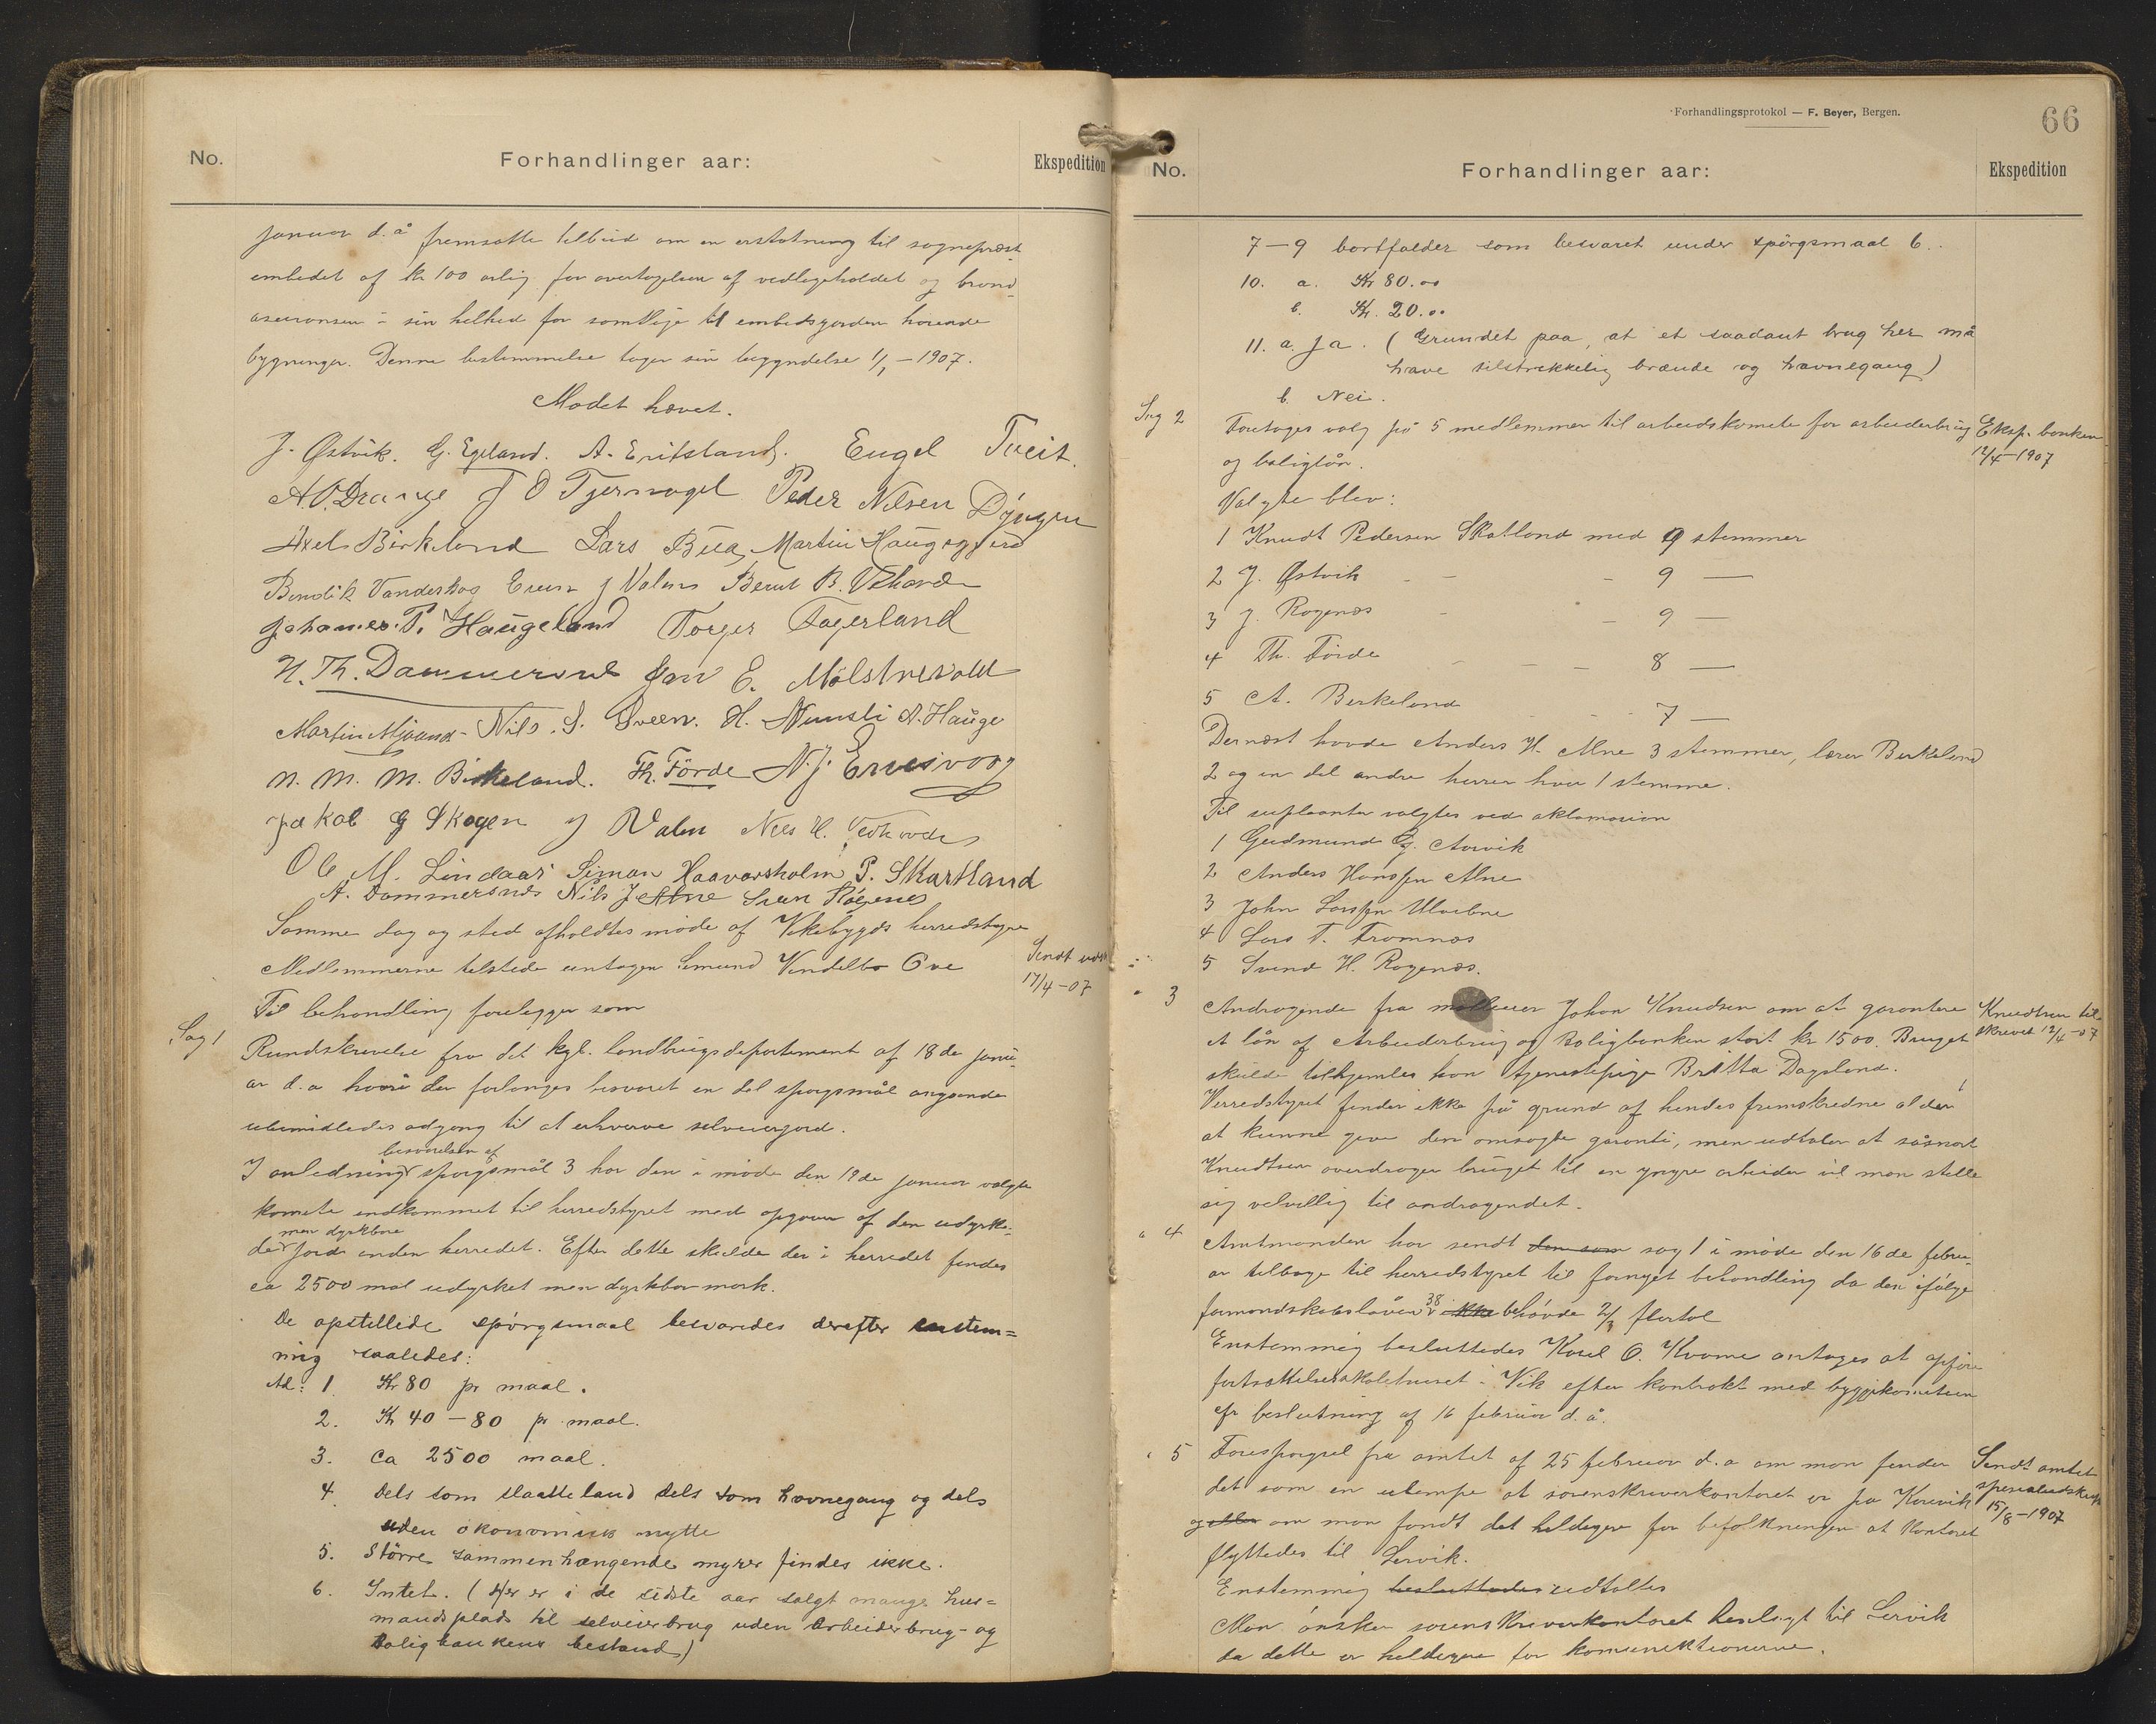 No.
Forhandlinger aar:
Ekspedition
januar d. å fremsatte tilbud om en erstatning til sogneprest-
embedet af kr 100 årlig for overtagelsen af vedligeholdet og brand-
aseuransen i sin helhed for samtlige til embedsgården hørende
bygninger. Denne bestemmelse tager sin begyndelse 1/1 – 1907.
Mødet hævet.
J. Østvik. G. Egeland. A. Eritsland. Engel Tveit.
A. O. Drange J O Tjernagel Peder Nilsen Döyngen
Axel Birkeland Lars Bua, Martin Haugsgjerd
Bendik Vandaskog J Valen Bernt B.
Johannes. P. Haugeland Torger Fagerland
N. Th. Dammersnes Jan E. Mölstrevold
Martin Mjaana - Nils. S. Sveen. H. A. Hauge
N. M. M. Birkeland. Th. Förde N. J. Ervesvaag
Jakob G Skogen J Valen Nils H.
Ole M. Lindaas Simon Haavarsholm P. Skartland
A. Dammersnes Nils J Alne Svein Røgenes
Samme dag og sted afholdtes møde af Vikebygds herredstyre
Medlemmerne tilstede untagen Simund Vendelbo Ove
Sendt
17/4 – 07
Til behandling forelegger som
Sag 1
Rundskrivelse fra det kgl. landbrugsdepartement af 18de janu-
ar d. a hvori der forlanges besvaret en del spørgsmål angående
ubemidledes adgang til at erhverve selveierjord.
besvarelsen af
I anledning spørgsmål 3 har den i møde den 19de januar valgte
komite indkommet til herredstyret med opgaver af den udyrke-
men dyrkbare
de jord inden herredet. Efter dette skulde der i herredet findes
ca 2500 mål udyrket men dyrkbar mark.
De opstillede spörgsmaal besvaredes derefter enstem=
mig saaledes:
Ad: 1. Kr 80 pr maal.
2. Kr 40 – 80 pr. maal.
3. Ca 2500 maal.
4. Dels som slaatteland dels som havnegang og dels
uden ökonomisk nytte
5. Större sammenhængende myrer findes ikke.
6. Intet. (Her er i de sidste aar solgt mange hus=
mandsplads til selveierbrug uden Arbeiderbrug- og
Boligbankens bestand)
Forhandlingsprotokol — F. Beyer, Bergen.
66
No.
Forhandlinger aar:
Ekspedition
7 – 9 bortfalder som besvaret under spörgsmaal 6.
10. a. Kr 80.00
b. Kr. 20.00
11. a. Ja. (Grundet paa, at et saadant brug her må
have tilstrækkelig brænde og havnegang)
b. Nei.
Sag 2
Foretages valg på 5 medlemmer til arbeidskomite for arbeiderbrug
og boliglån.
Eksp. banken
12/4 – 1907
Valgte blev:
1 Knudt Pedersen Skatland med 9 stemmer
2 J. Østvik - - 9 —
3 J. Røgenæs - - 9 —
4 Th. Förde - - - 8 —
5 A. Birkeland - - - 7 —
Dernæst havde Anders H. Alne 3 stemmer, lærer Birkeland
2 og en del andre herrer hver 1 stemme.
Til supleanter valgtes ved aklamasion
1 Gudmund G. Aarvik
2 Anders Hanssen Alne
3 John Larssen Ulvebne
4 Lars T. Framnæs
5 Svend H. Røgenæs.
" 3
Andragende fra Johan Knudsen om at garantere
et lån af Arbeiderbrug og Boligbanken stort kr 1500. Bruget
skulde tilhjemles han tjenestepige Britta Dagsland.
Knudtsen til-
skrevet 12/4 – 07
Herredstyret finder ikke på grund af hendes fremskredne alder
at kunne give den omsøgte garanti, men udtaler at såsnart
Knudtsen overdrager bruget til en yngre arbeider vil man stille
sig velvillig til andragendet.
" 4
Amtmanden har sendt den som sag 1 i møde den 16de febru-
ar tilbage til herredstyret til fornyet behandling da den ifølge
formandskabsloven § 38 ikke behøvde 2/3 flertal
Enstemmig besluttedes Karel O. Kvame antages at opføre
fortsættelsesskolehuset i Vik efter kontrakt med byggekomiteen
efr beslutning af 16 februar d. å.
" 5
Forespørgsel fra amtet af 25 februar d. a om man finder
det som en ulempe at sorenskriverkontoret er på
og eller om man fandt det heldigere for befolkningen at kontoret
flyttedes til Lervik.
Sendt amtet
spesialudskrift
15/8 – 1907
Enstemmig besluttedes udtaltes
Man ønsker sorenskriverkontoret henlagt til Lervik
da dette er heldigere for komunikationerne.